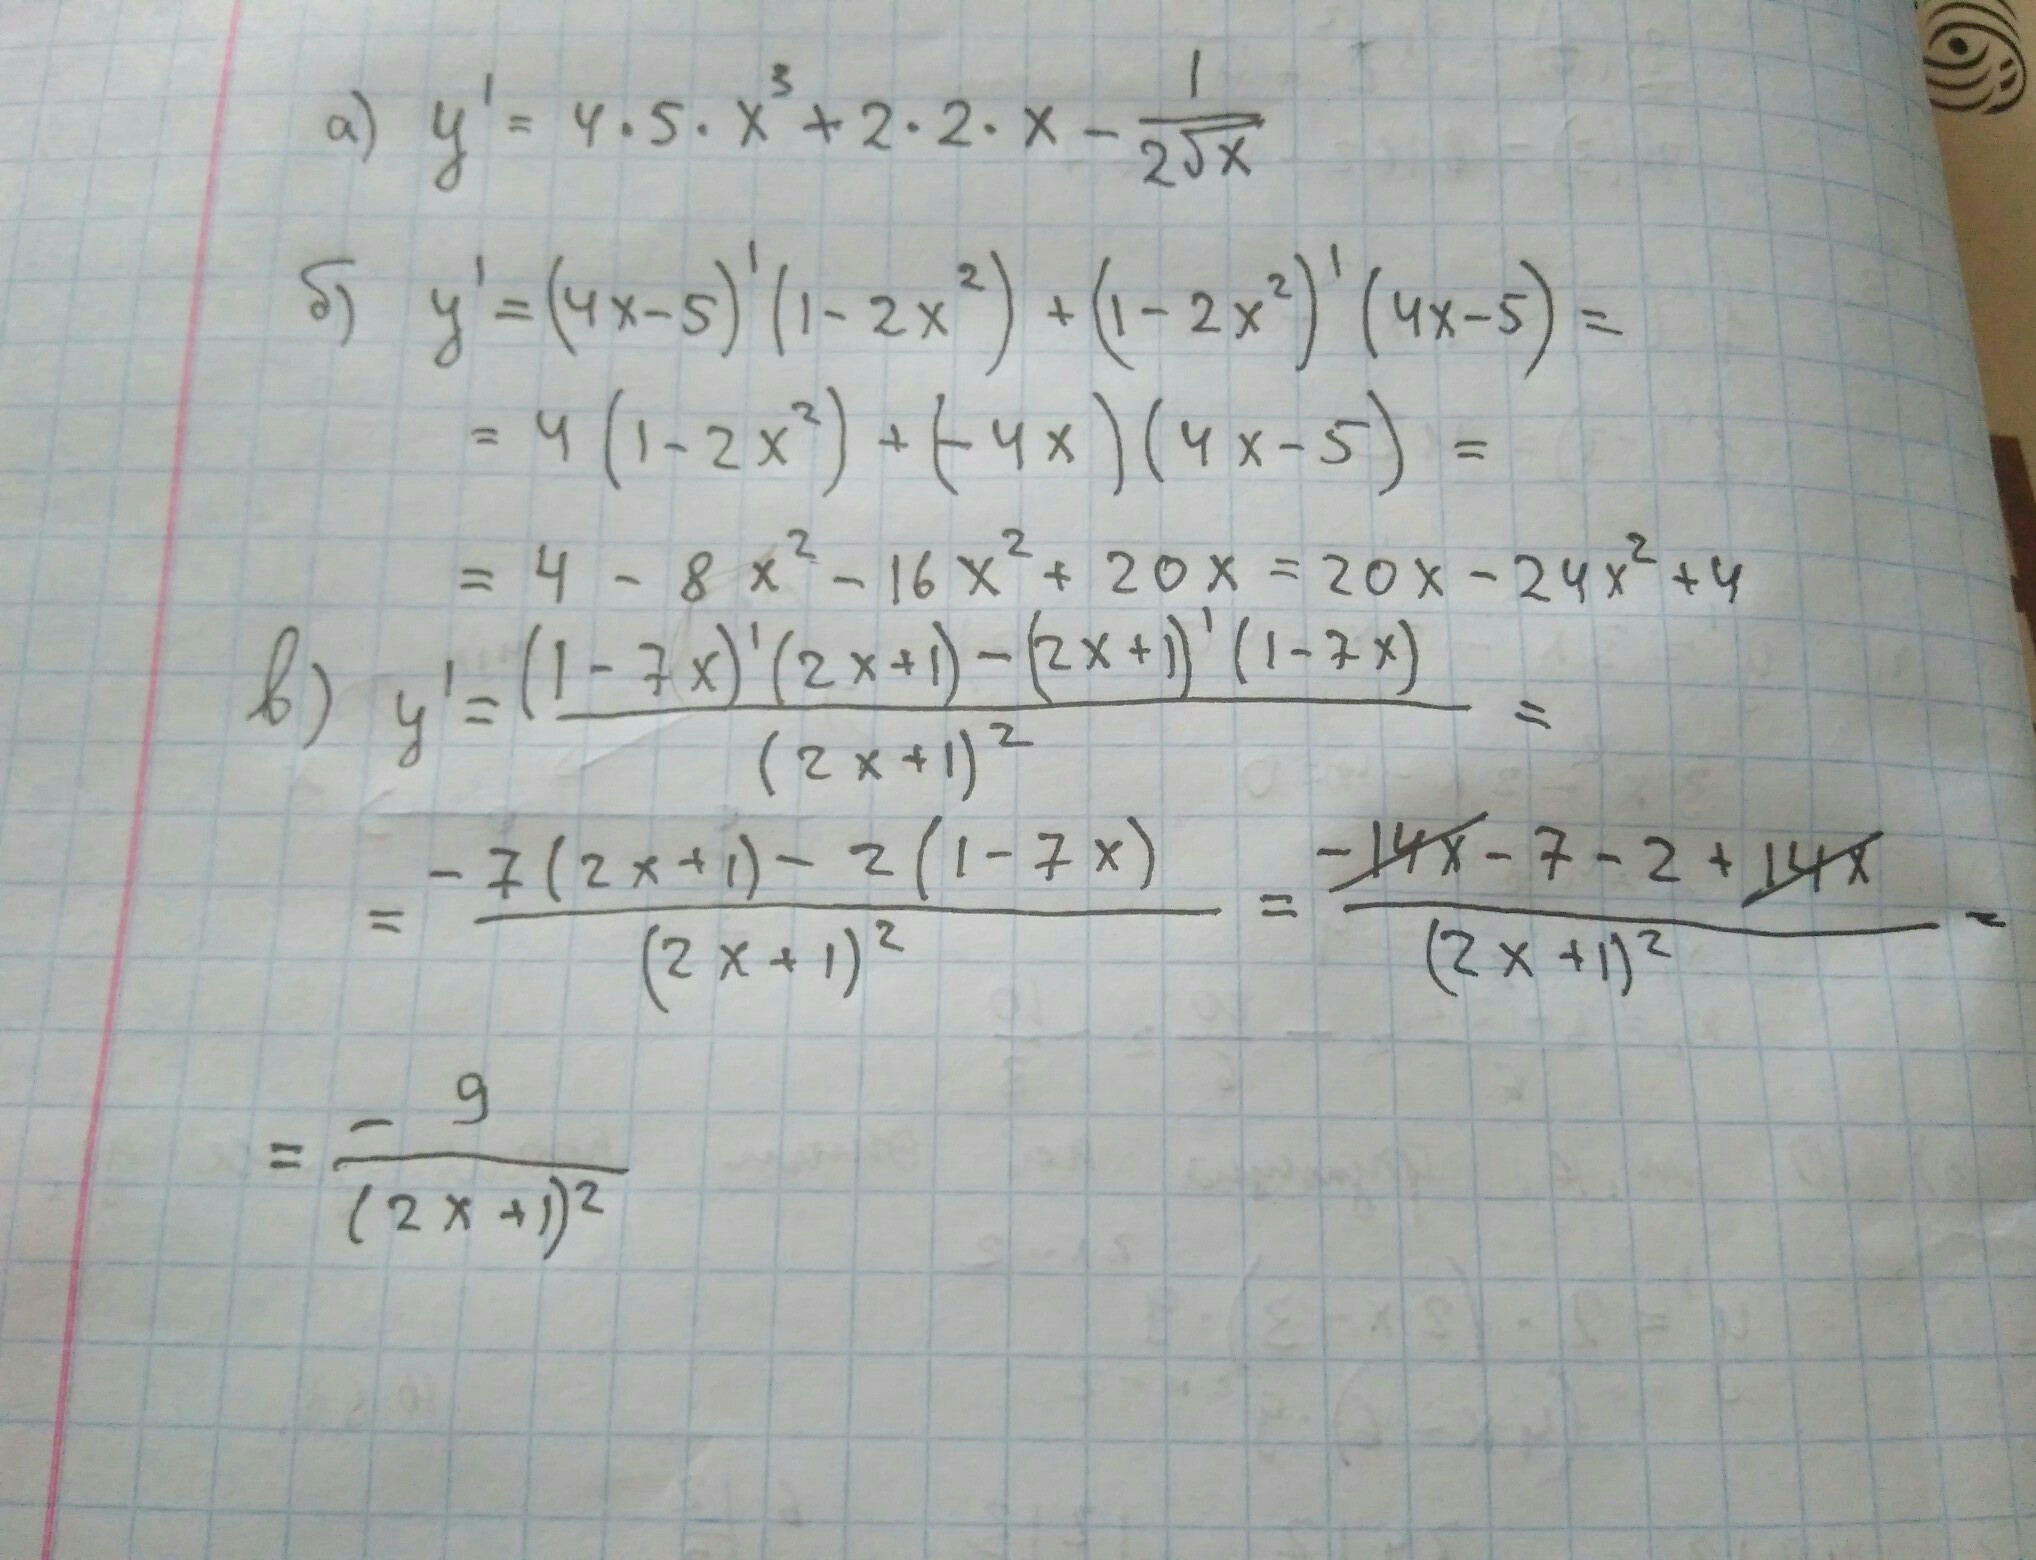 а) y' = 4·5·x³ + 2·2·x - 1/(2√x)
б) y' = (4x-5)'(1-2x²) + (1-2x²)'(4x-5) =
= 4(1-2x²) + (-4x)(4x-5) =
= 4 - 8x² - 16x² + 20x = 20x - 24x² + 4
в) y' = ((1-7x)'(2x+1) - (2x+1)'(1-7x))/(2x+1)² =
= (-7(2x+1) - 2(1-7x))/(2x+1)² = (-14x - 7 - 2 + 14x)/(2x+1)² =
= -9/(2x+1)²